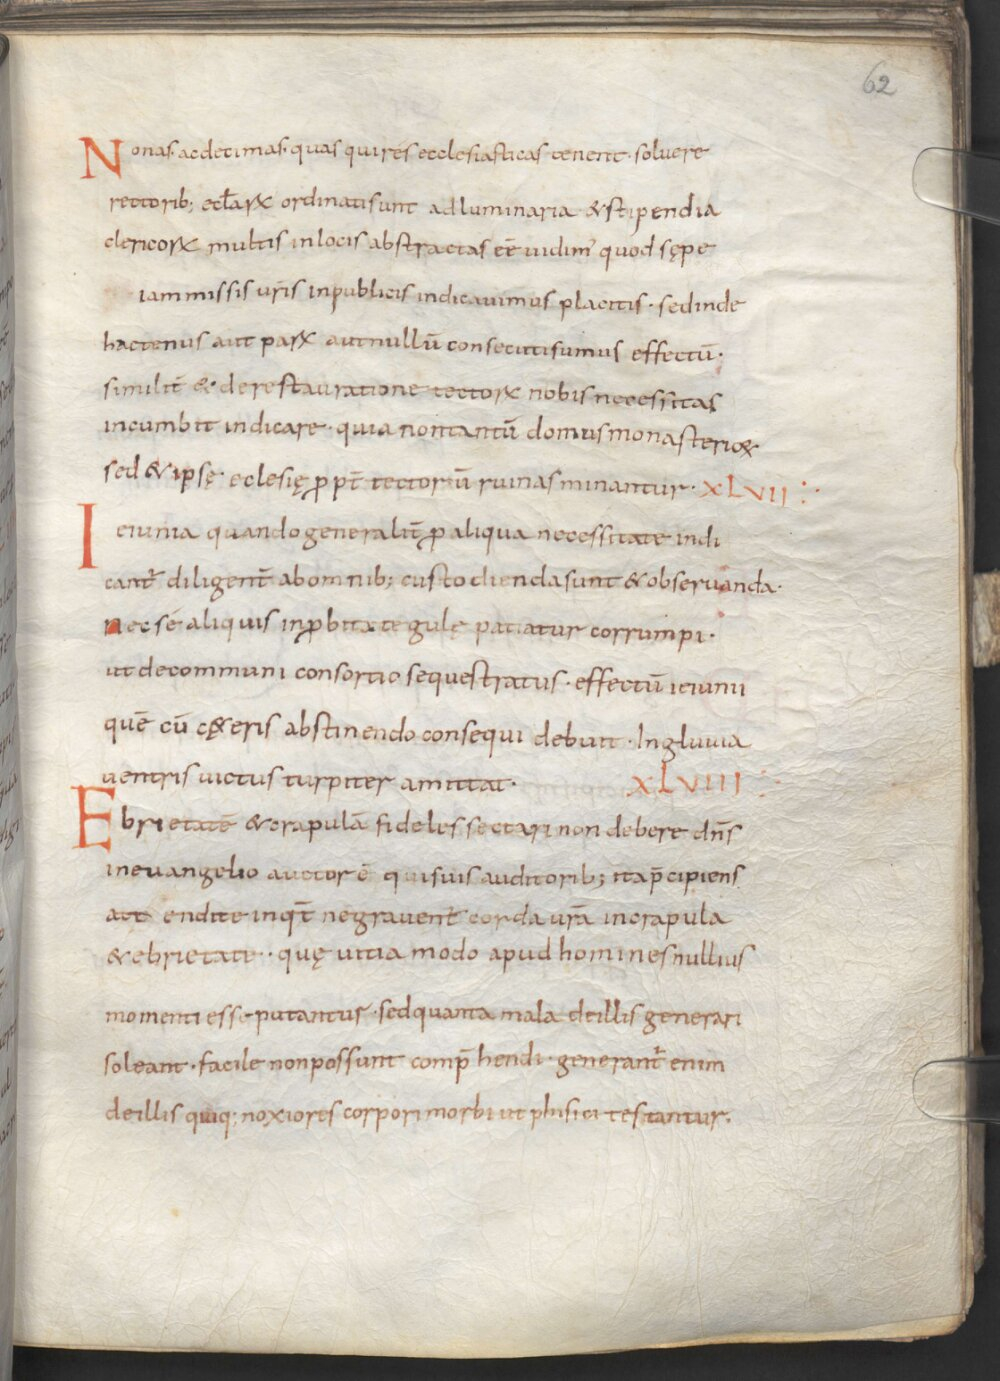 62
Nonas· acdecimas· quas quires ecclesiasticas tenent· soluere
rectorib; eclarꝝ ordinatisunt adluminaria &stipendia
clericorꝝ multis inlocis abstractas eē uidim' quod sępe
iammissis uris inpublicis indicauimus placitis· sedinde
hactenus aut parꝝ autnullū consecutisumus effectū·
similit̄ &· derestauratione tectorꝝ nobis necessitas
incumbit indicare· quia nontantū domusmonasteriorꝝ
sed &ipsę· eclesię ꝓpt̄ tectorūruinasminantur· XLVII :·
Ieiunia quandogeneralit̄ ꝓ aliqua necessitate indi
cant̄ diligent̄ abomnib; custodiendasunt &obseruanda·
nec sé aliquis inꝓbitate gulę patiatur corrumpi·
ut decommuni consortio sequestratus· effectū ieiunii
quē cū cę&eris abstinendo consequi debuit· Ingluuia
uentris uictus turpiter amittat· XLVIII :·
Ebrietatē &crapulā fideles sectari non debere dn̄s
ineuangelio auctor ē quisuis auditorib; itap̄cipiens
att endite inqt̄ negrauent̄ corda urā incrapula
&ebrietate·· quę uitia modo apud homines nullius
momenti esse putantur· sedquanta mala deillis generari
soleant· facile nonpossunt comp̄hendi· generant̄ enim
deillis quiq; noxiores corpori morbi ut phisici testantur.